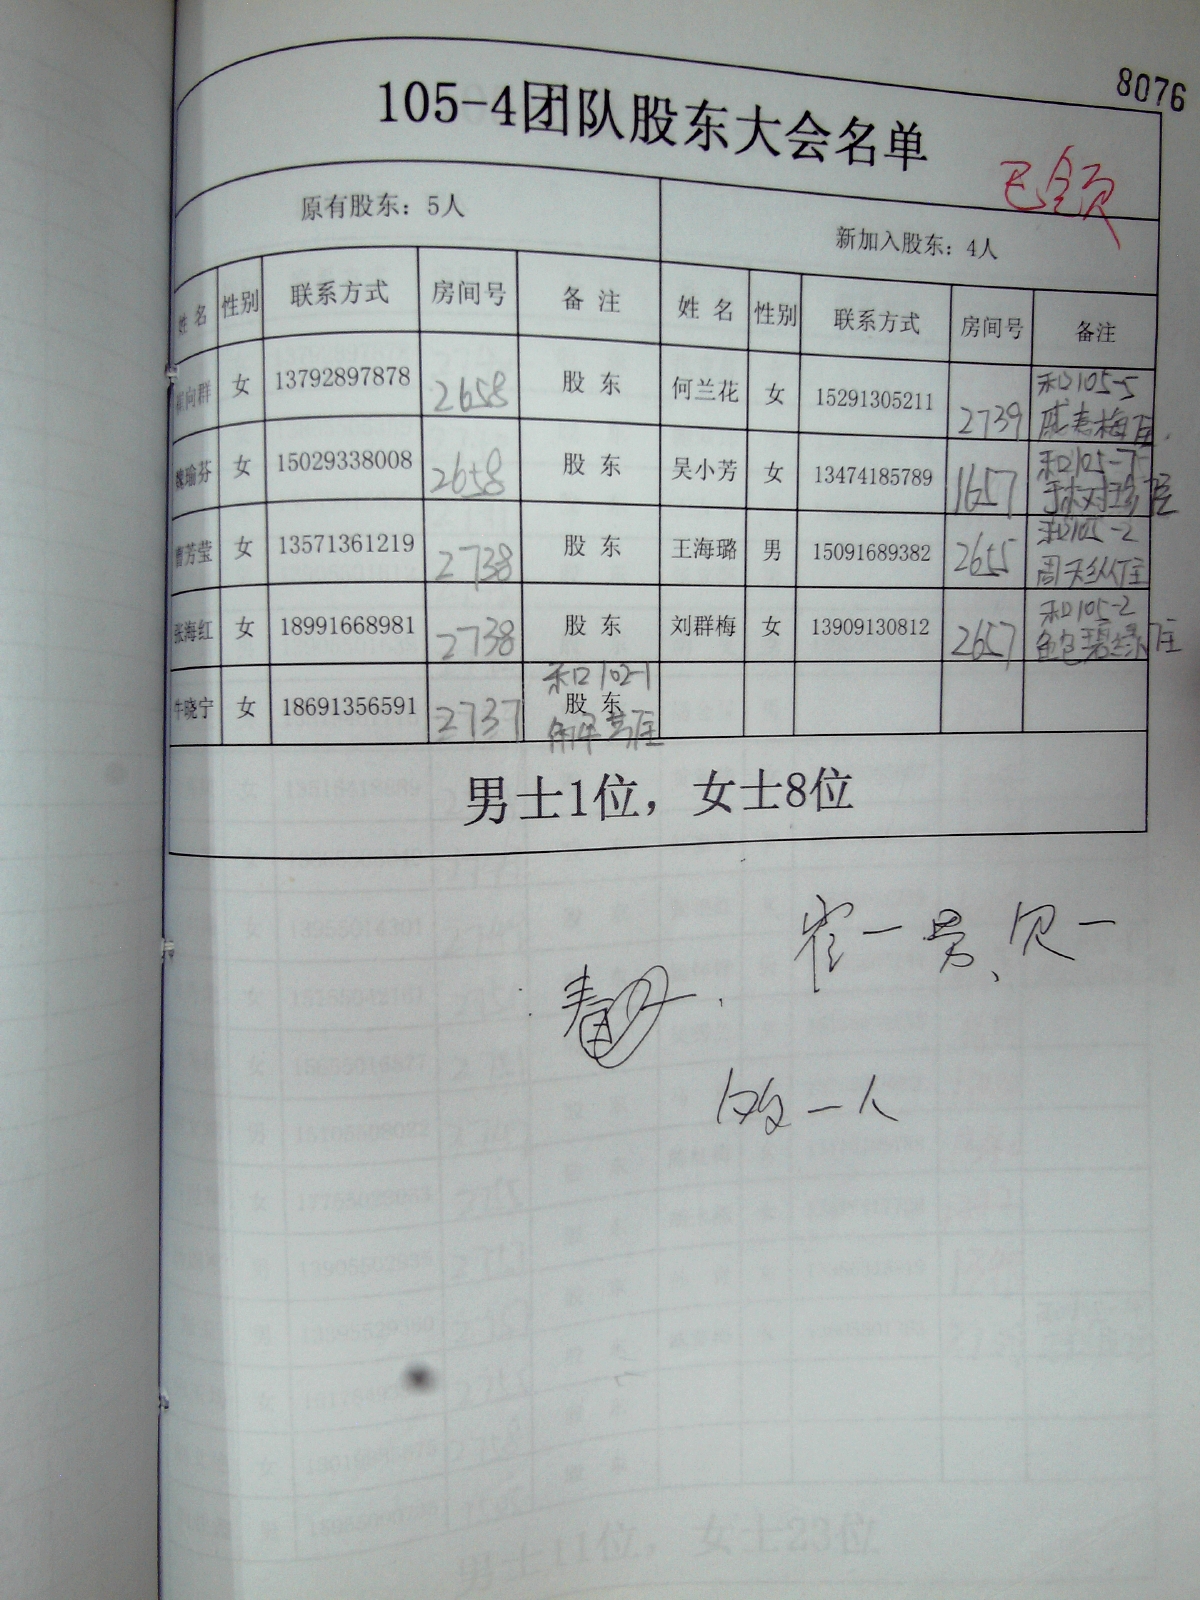 8076
105-4团队股东大会名单
已领
原有股东：5人 新加入股东：4人
姓 名 性别 联系方式 房间号 备 注 姓 名 性别 联系方式 房间号 备注
向群 女 13792897878 2658 股 东 何兰花 女 15291305211 2739 和105-5 戚春梅住
魏瑜芬 女 15029338008 2658 股 东 吴小芳 女 13474185789 1657 和105-7 住
曹芳莹 女 13571361219 2738 股 东 王海璐 男 15091689382 2655 和105-2 周天纵住
张海红 女 18991668981 2738 股 东 刘群梅 女 13909130812 2657 和105-2 鲍碧绿住
牛晓宁 女 18691356591 2737 和102-1 股 东 住
男士1位，女士8位
一男、欠一
一人